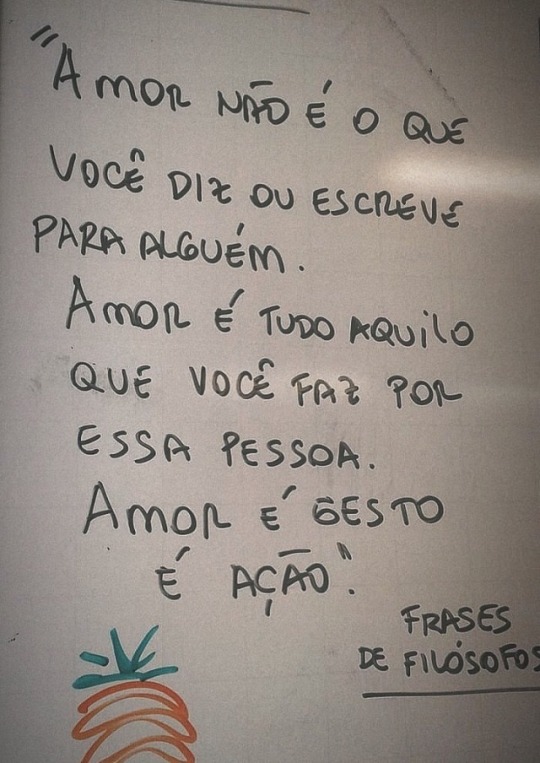 "AMOR NÃO É O QUE
VOCÊ DIZ OU ESCREVE
PARA ALGUÉM.
AMOR É TUDO AQUILO
QUE VOCÊ FAZ POR
ESSA PESSOA.
AMOR É GESTO
É AÇÃO".
FRASES
DE FILÓSOFOS